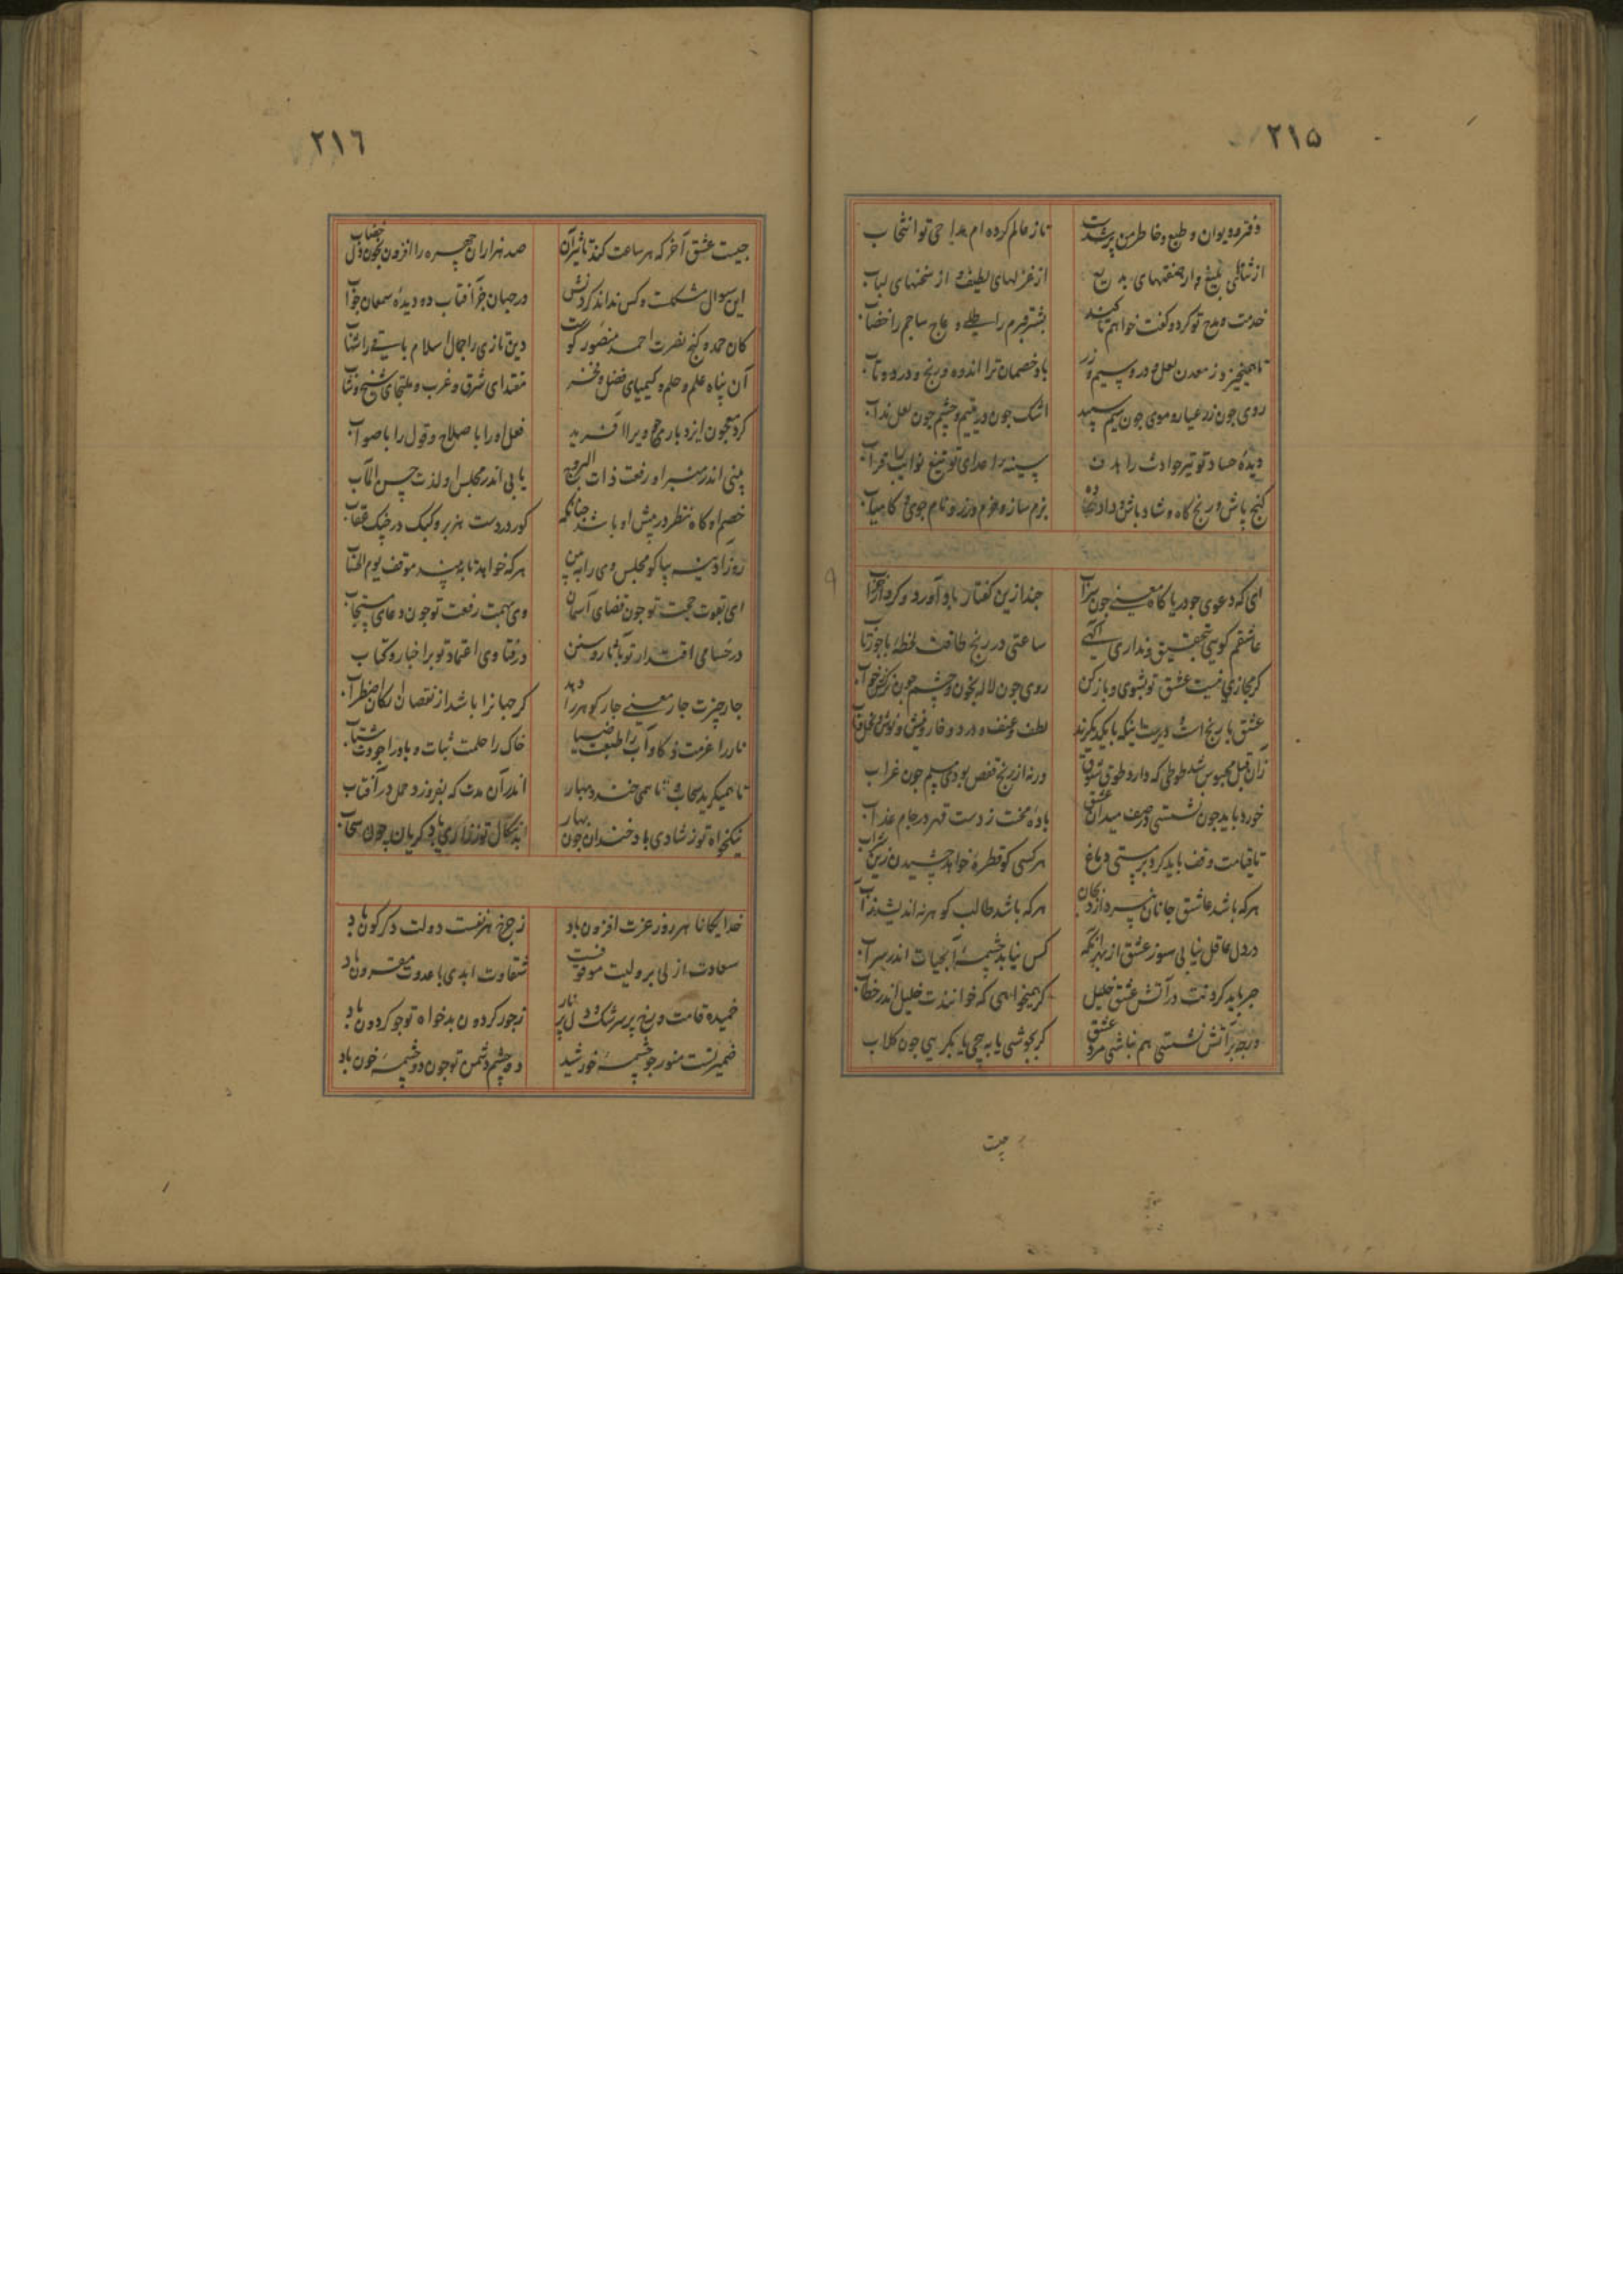 ۲۱۵
دفتر و دیوان و طبع و خاطر من پرشدست
تا ز عالم کرده ام مداحی تو انتخاب
از ثنائی بلیغ و از صنعتهای بدیع
از غزلهای لطیف و از سخنهای لباب
خدمت و مدح تو کرد و گفت خواهم تا کند
دفترم را و عاج ساجم را خضاب
تا همیخیزد ز معدن لعل و در و سیم و زر
باد خصمان ترا اندوه و رنج و درد و تاب
روی چون زر عیار و موی چون سیم سپید
اشک چون در یتیم و چشم چون لعل مذاب
دیده حساد تو تیر حوادث را هدف
سینه اعدای تو تیغ نوایب را قراب
گنج پاش و رنج کاه و شاد باش و داد ده
بزم ساز و عزم ورز و نام جوی و کامیاب
ای که دعوی جو دریا کاه معنی چون سراب
چند ازین گفتار باد آورد و کردار خراب
عاشقم گویی بتحقیق و نداری آگهی
ساعتی در رنج طاقت لحظه با جوز تاب
گر مجازی نیست عشق تو بشوی و باز کن
روی چون لاله بخون و چشم چون نرگس ز خواب
عشق با رنج است دیرست اینکه با یکدیگرند
لطف و عنف و درد و خار و نیش و نوش و نخل
زان قبل محبوس شد طوطی که دارد طوق شوق
ورنه از رنج قفص بودی مسلم چون غراب
خورد باید چون نشستی در صف میدان عشق
باده محنت ز دست قهر در جام عذاب
تا قیامت وقف باید کرد بر مستی دماغ
هر کسی کو قطره خواهد چشیدن زین شراب
هر که باشد عاشق جانان نپردازد بجان
هر که باشد طالب گوهر نه اندیشد ز آب
در دل عاقل نیابی سوز عشق از بهر آنکه
کس نیابد چشمه آبحیات اندر سراب
صبر باید کردنت در آتش عشق خلیل
گر همیخواهی که خوانندت خلیل اندر خطاب
ور چو بر آتش نشستی هم نباشی مرد عشق
گر بجوشی یا به پیچی یا بگریی چون گلاب
چیست
۲۱٦
چیست عشق آخر که هر ساعت کند تاثیر آن
صد هزاران چهره را افزون بخون دل خضاب
این سوال مشکلست و کس نداند کردنش
در جهان جز آفتاب دوده سمعان جواب
کان حمد و گنج نصرت احمد منصور گوست
دین تازی را جمال اسلام باقی را شهاب
آن پناه علم و حلم و کیمیای فضل و فخر
مقتدای شرق و غرب و ملتجای شیخ و شاب
کرد معجون ایزد باری چو ویرا آفرید
فعل او را با صلاح و قول را با صواب
بینی اندر منبر او رفعت ذات البروج
یابی اندر مجلس او لذت حسن المآب
خصم او گاه نظر در پیش او باشد چنانکه
گور در دست هزبر و کبک در چنگ عقاب
روز آدینه بیا گو مجلس وی را ببین
هر که خواهد تا ببیند موقف یوم الحساب
ای بقوت حجت تو چون قضای آسمان
وی بهمت رفعت تو چون دعای مستجاب
در حسامی اقتدار تو بآثار و سنن
در فتاوی اعتماد تو بر اخبار و کتاب
چار چیزت چار معنی چار گوهر را دهد
گر جهانرا باشد از نقصان ارکان اضطراب
نار را عزمت ذکا و آب را طبعت صفا
خاک را حلمت ثبات و باد را جودت شتاب
تا همیگرید سحاب و تا همی خندد بهار
اندر آن مدت که بفروزد حمل در آفتاب
نیکخواه تو ز شادی باد خندان چون بهار
بدسگال تو ز زاری باد گریان چون سحاب
خدایگانا هر روز عزت افزون باد
ز چرخ بر دولت دگرگون باد
سعادت ازلی بر ولیت موقوفست
شقاوت ابدی با عدوت مقرون باد
خمیده قامت و رخ پر سرشک و دل پر نار
ز جور گردون بدخواه تو چو گردون باد
ضمیر تست منور چو چشمه خورشید
دو چشم دشمن تو چون دو چشمه خون باد